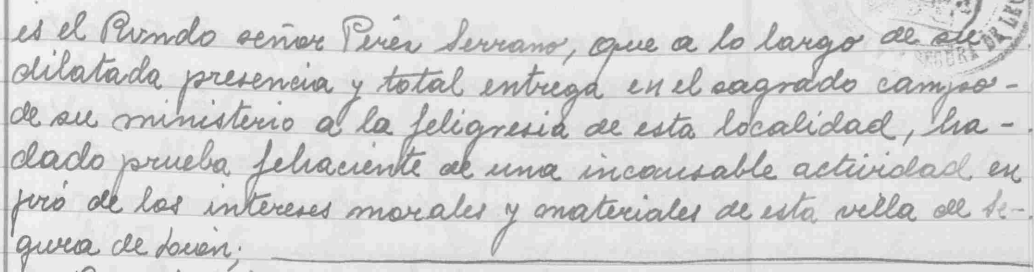 es el Rvndo señor Pérez Serrano, que a lo largo de su
dilatada presencia y total entrega en el sagrado campo-
de su ministerio a la feligresia de esta localidad, ha-
dado prueba fehaciente de una incansable actividad en
pró de los intereses morales y materiales de esta villa de Se-
gura de León;